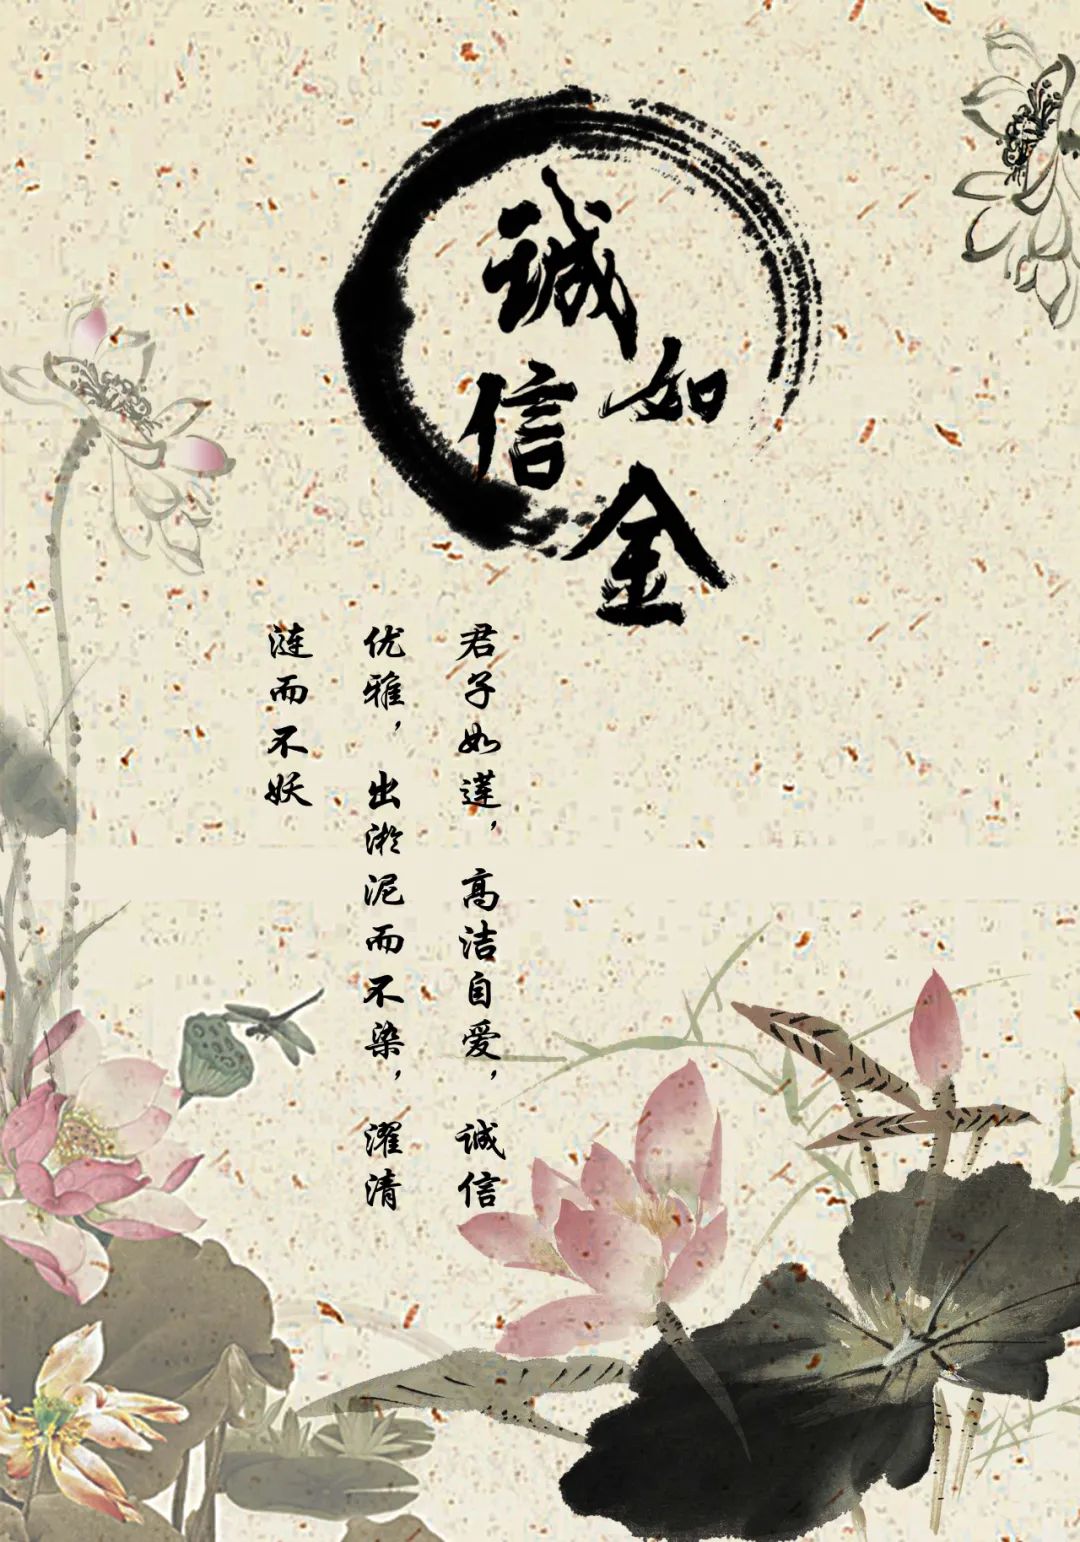 诚信
如金
君子如莲，高洁自爱，诚信
优雅，出淤泥而不染，濯清
涟而不妖